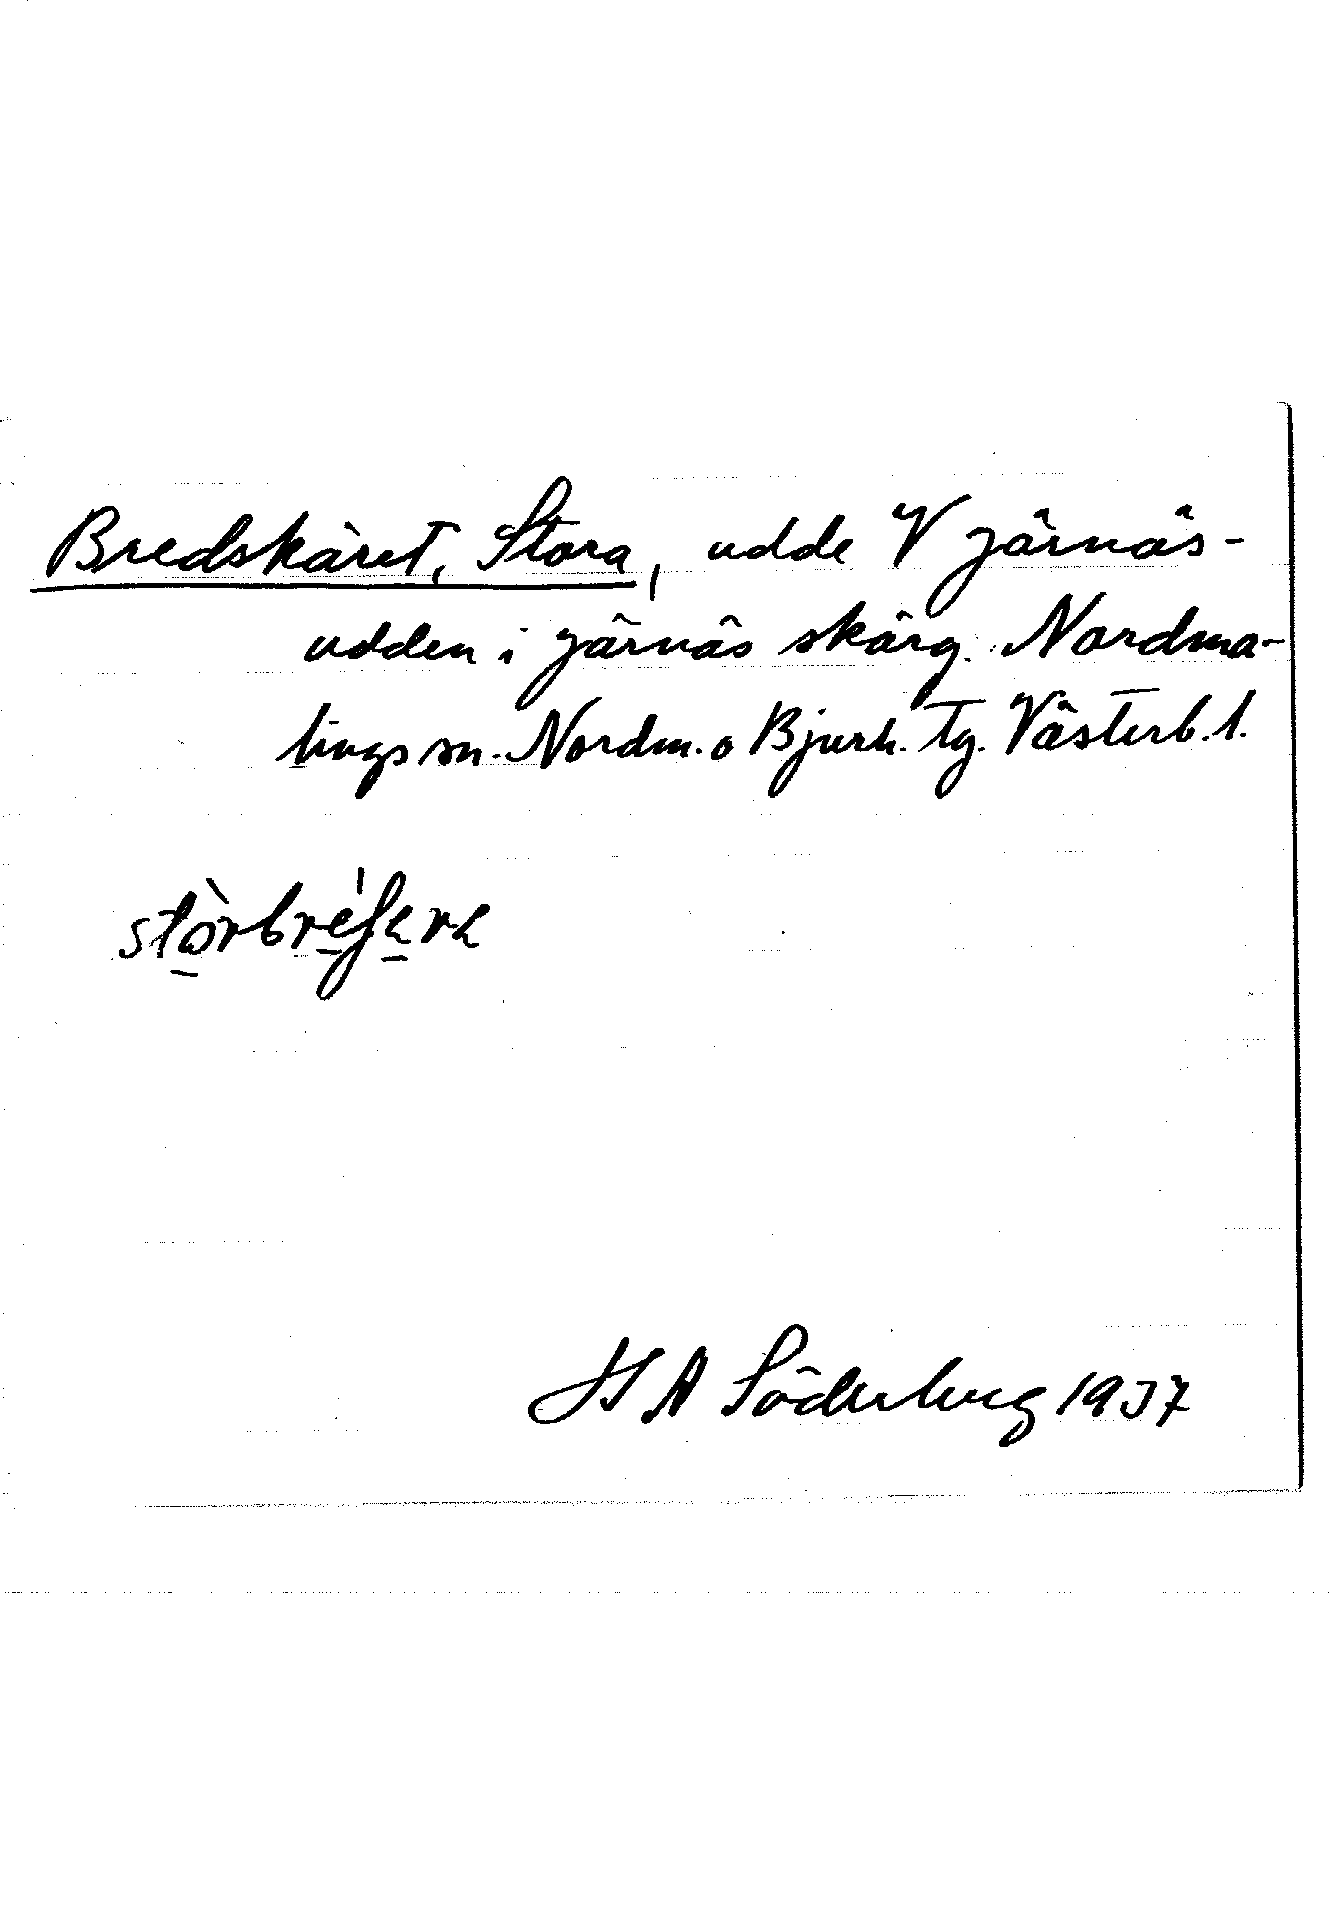 Bredskäret, Stora, udde V Järnäs-
udden i Järnäs skärg. Nordma-
lings sn. Nordm. o Bjurh. Tg. Västerb. l.
H A Söderberg 1937